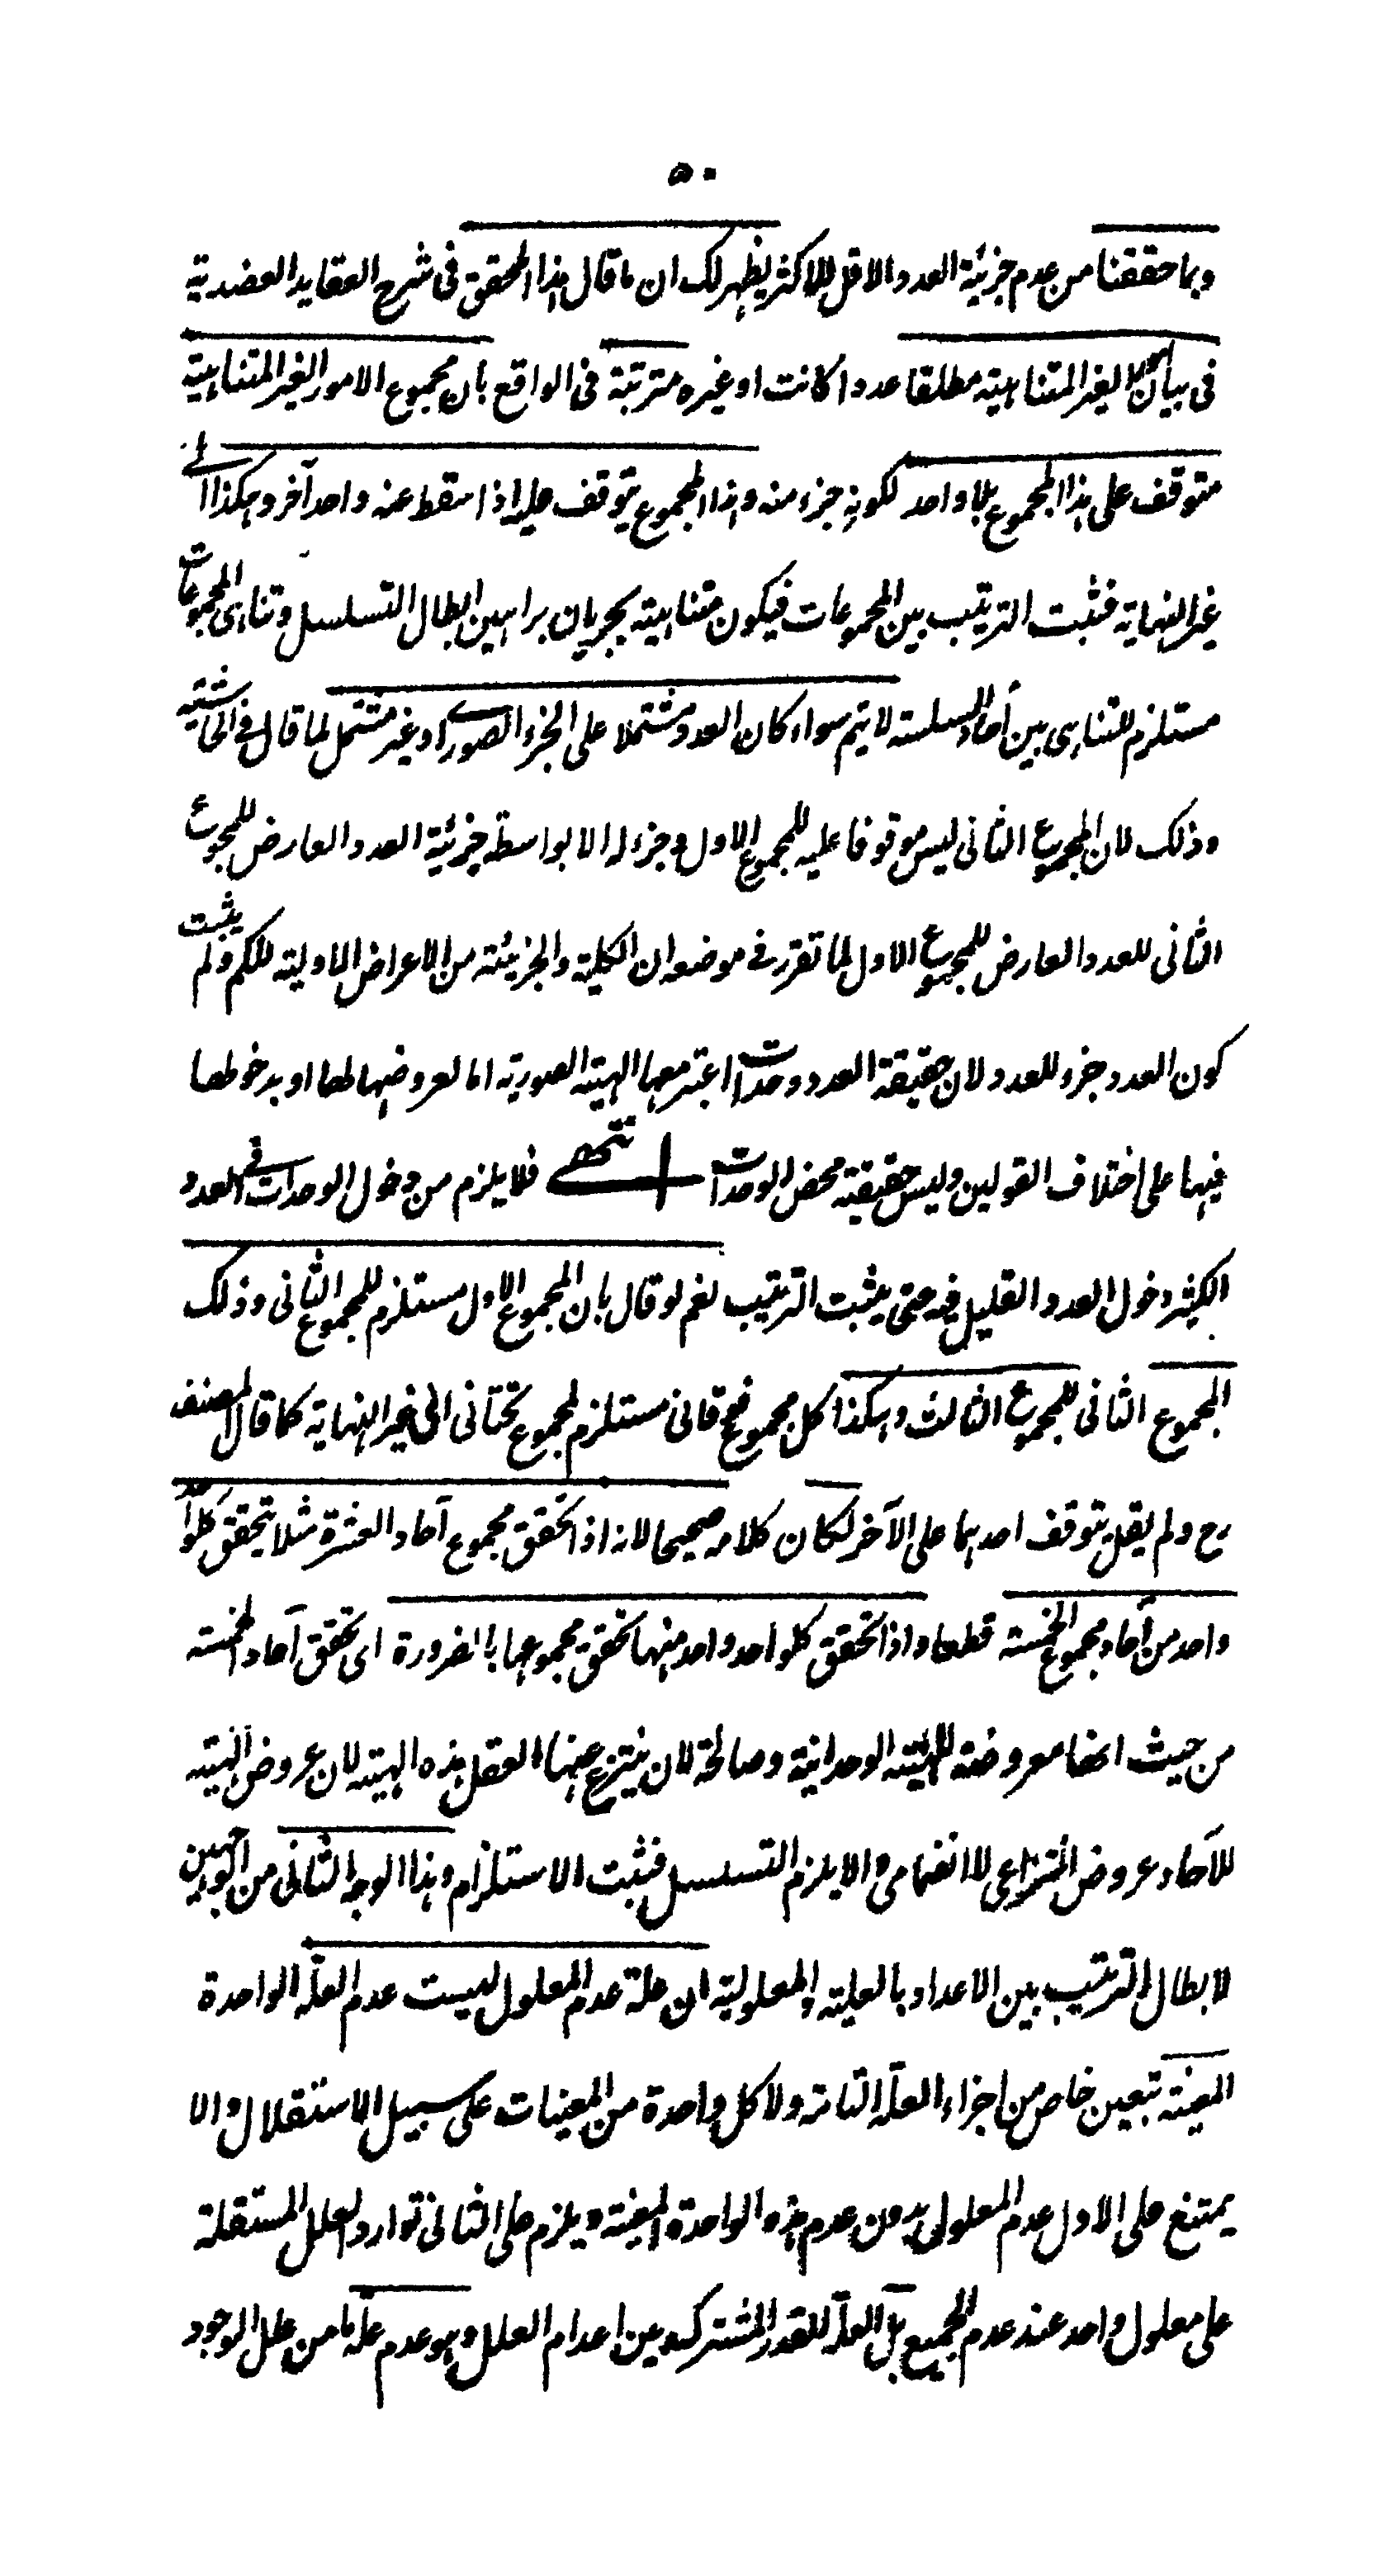 ٥٠
وبما حققنا من عدم جزئية العدد الاقل للاكثر يظهر لك ان ما قال هذا المحقق فى شرح العقايد العضدية
فى بيان الغير المتناهية مطلقا عددا كانت او غيره مترتبة فى الواقع بان مجموع الامور الغير المتناهية
متوقف على هذا المجموع بلا واحد لكونه جزء منه وهذا المجموع يتوقف عليه اذا سقط عنه واحد آخر وهكذا الى
غير النهاية فثبت الترتيب بين المجموعات فيكون متناهية بجريان براهين ابطال التسلسل وتناهى المجموعات
مستلزم للتناهى بين أحاد السلسلة لا يتم سواء كان العدد مشتملا على الجزء الصورى او غير مشتمل لما قال فى الحاشية
وذلك لان المجموع الثانى ليس موقوفا عليه للمجموع الاول وجزء له الا بواسطة جزئية العدد العارض للمجموع
الثانى للعدد العارض للمجموع الاول لما تقرر فى موضعه ان الكلية والجزئية من الاعراض الاولية للكم ولم يثبت
كون العدد جزء للعدد لان حقيقة العدد وحدات اعتبر معها الهيئة الصورية اما لعروضها لها او بدخولها
فيها على اختلاف القولين وليس حقيقته محض الوحدات انتهى فلا يلزم من دخول الوحدات فى العدد
الكثير دخول العدد القليل فيه حتى يثبت الترتيب نعم لو قال بان المجموع الاول مستلزم للمجموع الثانى وذلك
المجموع الثانى للمجموع الثالث وهكذا كل مجموع فوقانى مستلزم لمجموع تحتانى الى غير النهاية كما قال المصنف
رح ولم يقل بتوقف احدهما على الآخر لكان كلامه صحيحا لانه اذا تحقق مجموع آحاد العشرة مثلا يتحقق كلواحد
واحد من أحاد مجموع الخمسة قطعا واذا تحقق كلواحد واحد منها تحقق مجموعها بالضرورة اى تحقق آحاد الخمسة
من حيث انها معروضة للهيئة الوحدانية وصالحة لان ينتزع عنها العقل هذه الهيئة لان عروض الهيئة
للآحاد عروض انتزاعى لا انضمامى والا يلزم التسلسل فثبت الاستلزام وهذا الوجه الثانى من الوجهين
لابطال الترتيب بين الاعداد بالعلية والمعلولية ان علة عدم المعلول ليست عدم العلة الواحدة
المعينة بتعين خاص من اجزاء العلة التامة ولا كل واحدة من المعينات على سبيل الاستقلال والا
يمتنع على الاول عدم المعلول بدون عدم هذه الواحدة المعينة ويلزم على الثانى توارد العلل المستقلة
على معلول واحد عند عدم الجميع بل العلة للقدر المشترك بين اعدام العلل وهو عدم علة ما من علل الوجود